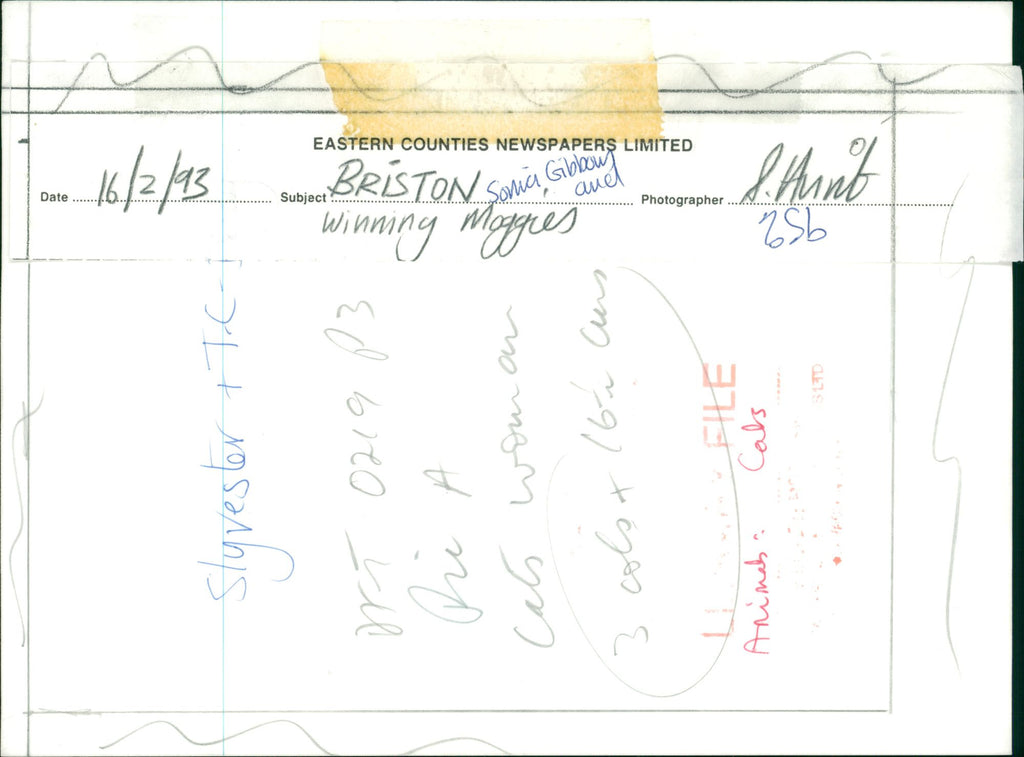 EASTERN COUNTIES NEWSPAPERS LIMITED
Date 16/2/93 Subject BRISTON Sonia Gibbons and Photographer S. Hunt
Winning Moggies 256
Slyvester + T.C
0219 P3
Pic A
Cats woman
3 cols x 16½ cms
FILE
Animals: Cats